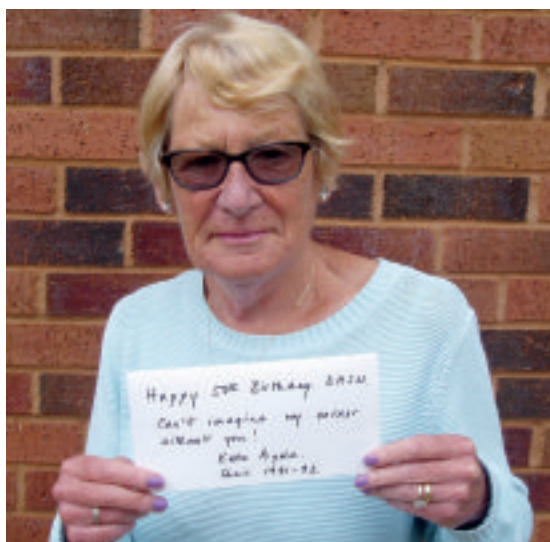 Happy 50th Birthday BASW
Can't imagine my career
without you!
Kate
Chair 1991-92